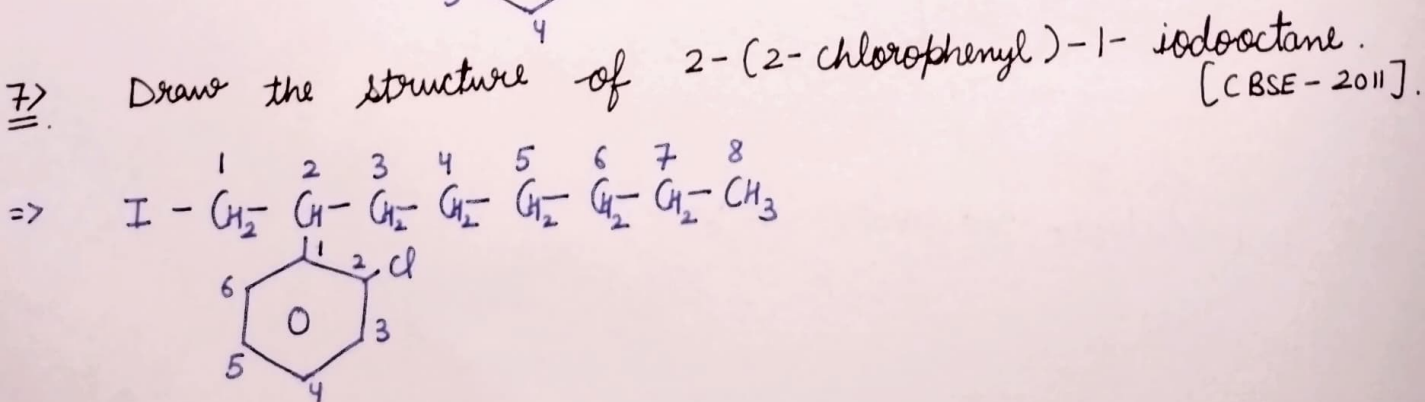 4
7> Draw the structure of 2-(2-chlorophenyl)-1-iodooctane.
[CBSE-2011].
1 2 3 4 5 6 7 8
=> I - CH₂ - CH - CH₂ - CH₂ - CH₂ - CH₂ - CH₂ - CH₃
1
2 Cl
6
O
3
5
4